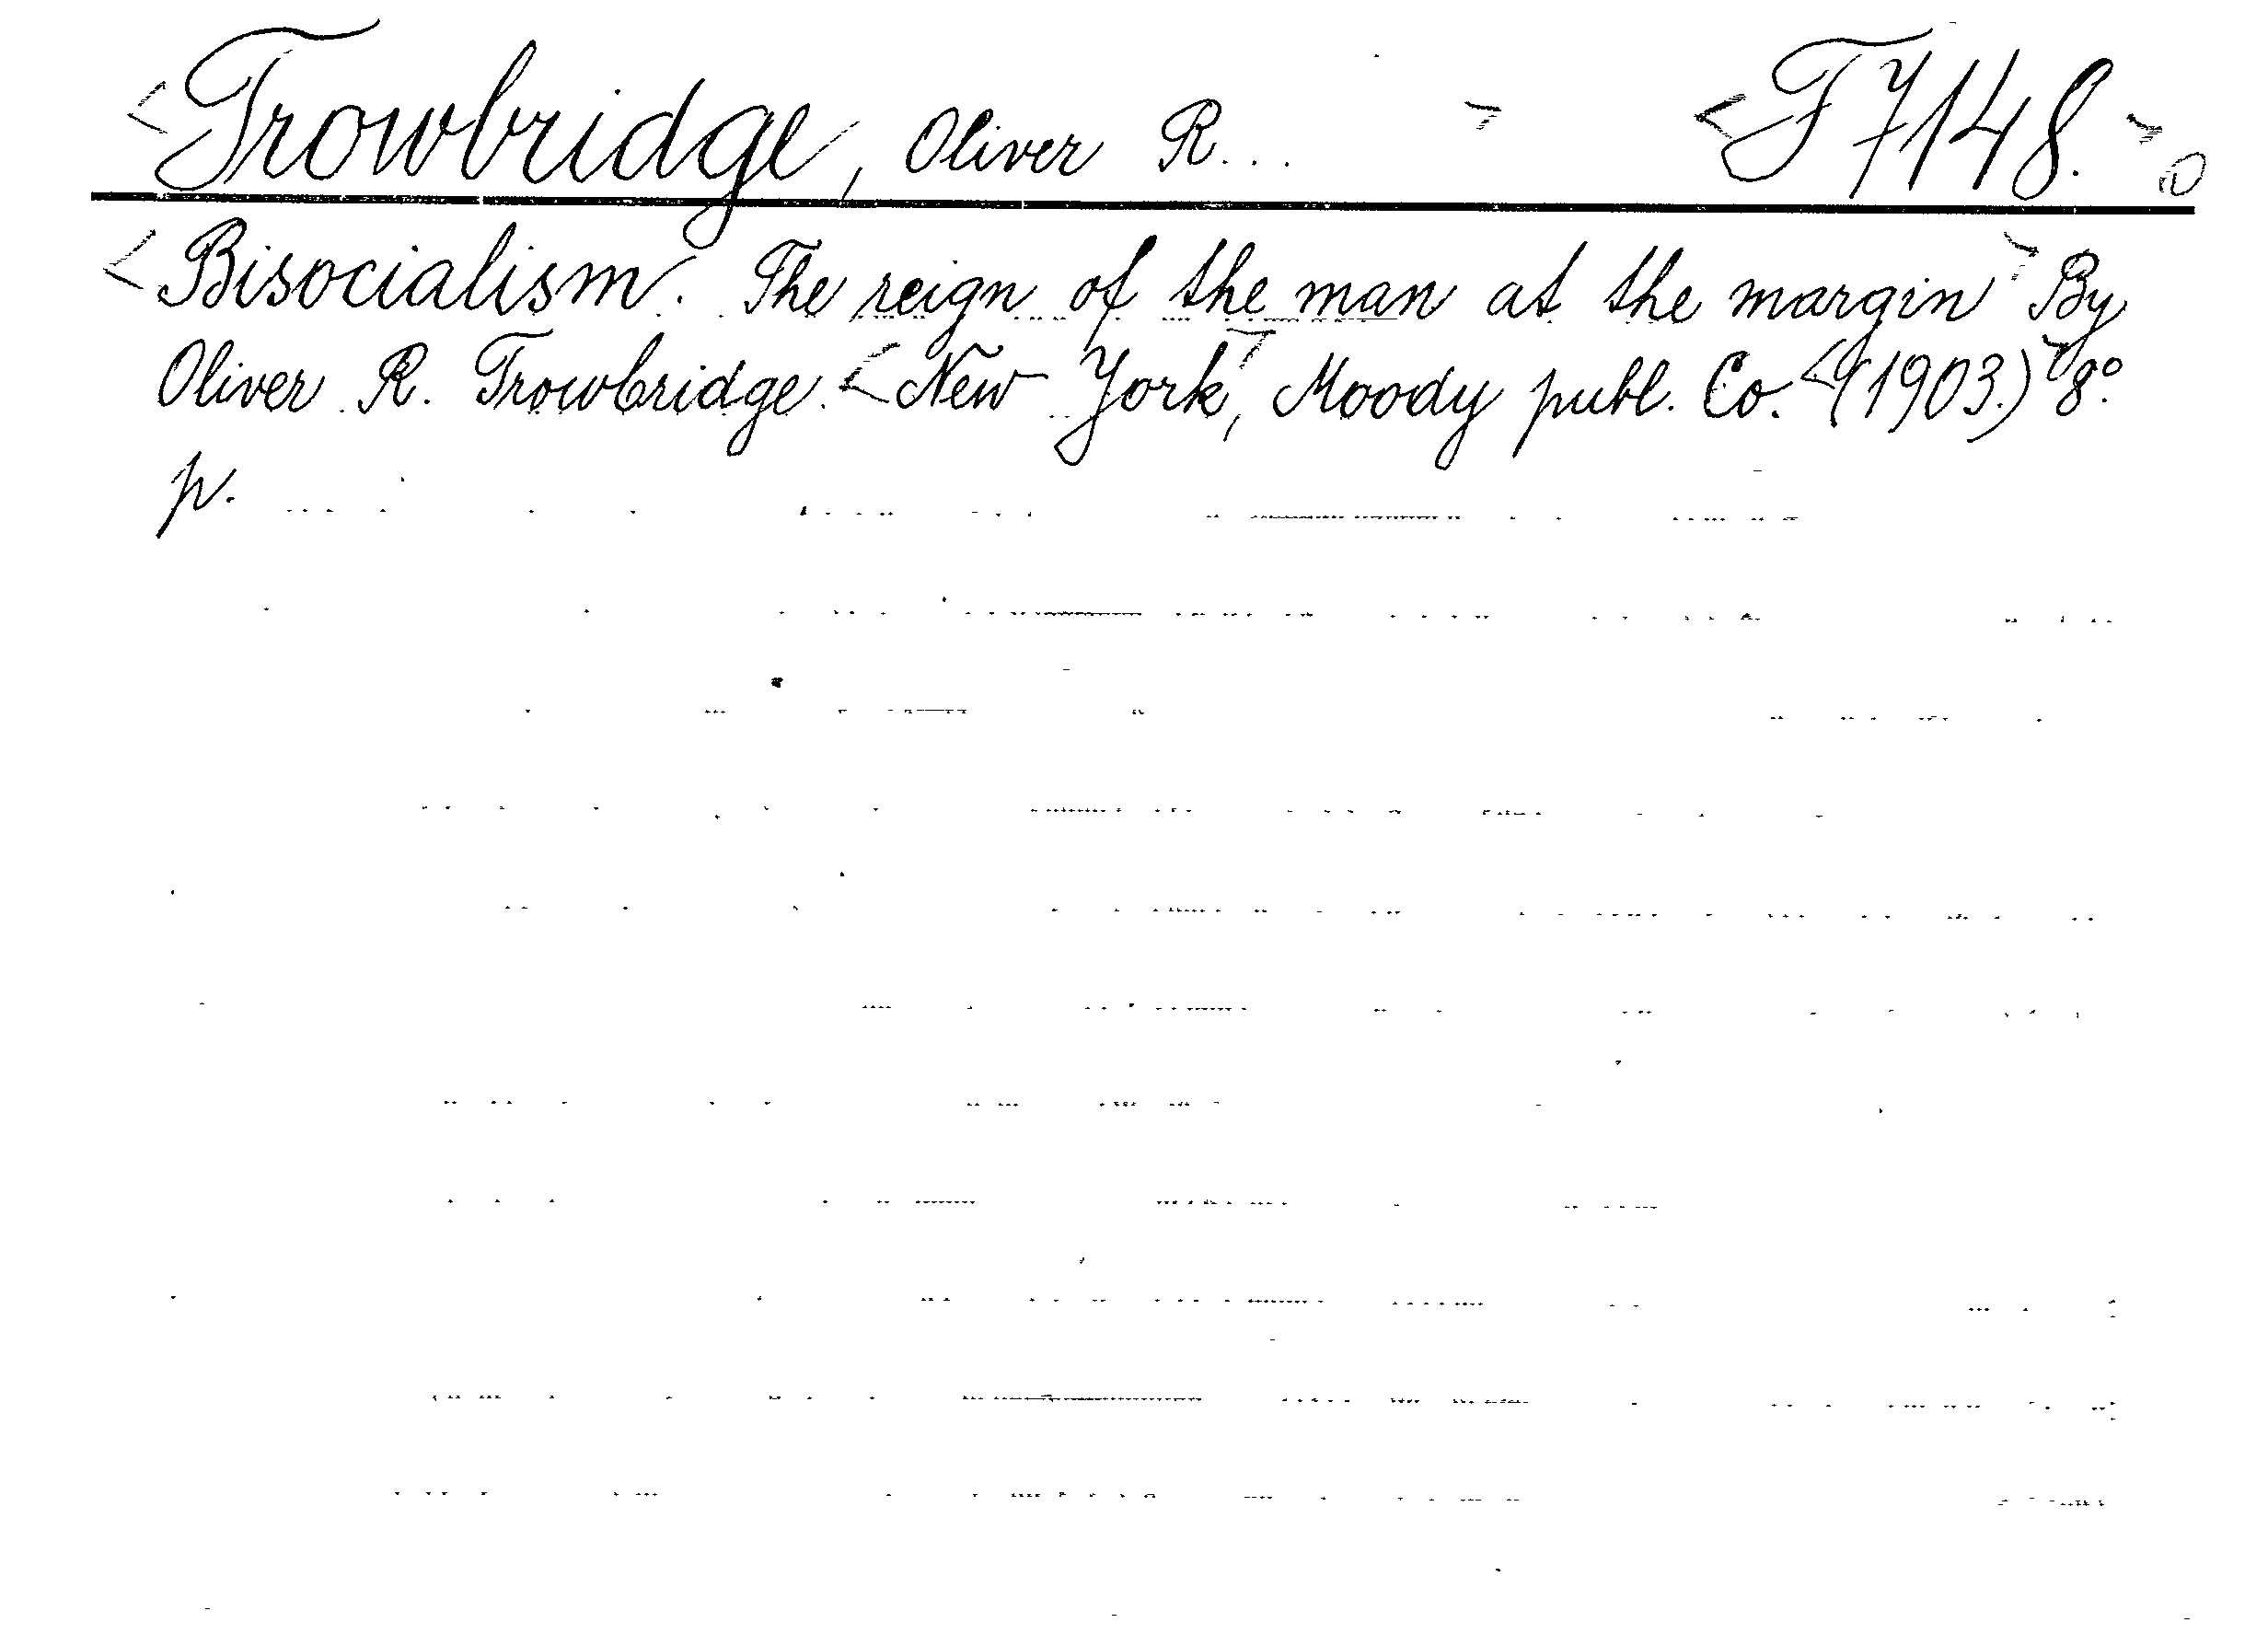 <Trowbridge, Oliver R... > <F7148.> O
<Bisocialism. The reign of the man at the margin> By
Oliver R. Trowbridge. <New York>, Moody publ. Co. <(1903.)> 8°.
p.